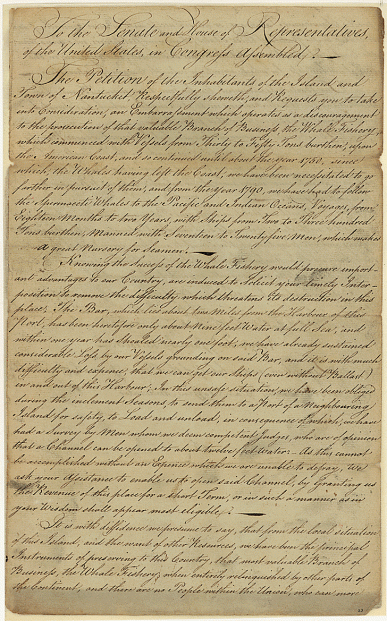 To the Senate and House of Representatives,
of the United States, in Congress Assembled,
The Petition of the Inhabitants of the Island and
Town of Nantucket Respectfully sheweth, and Requests you to take
into Consideration, an Embarrassment which operates as a discouragement
to the prosecution of that valuable Branch of Business the Whale Fishery,
which commenced with Vessels from Thirty to Fifty Tons burthen, upon
the American Coast, and so continued until about the year 1760, since
which, the Whales having left the Coast, we have been necessitated to go
farther in pursuit of them, and from the year 1790, we have had to follow
the Spermaceti Whales to the Pacific and Indian Oceans, Voyages, from
Eighteen Months to two Years, with Ships from Two to Three hundred
Tons burthen, Manned with Seventeen to Twenty five Men, which makes
a great Nursery for Seamen.
Knowing the success of the Whale Fishery would procure import-
ant advantages to our Country, are induced to solicit your timely Inter-
position to remove the difficulty which threatens its destruction in this
place; The Bar, which lies about two Miles from the Harbour of this
Port, has been heretofore only about Nine feet Water at full Sea, and
within one year has Shoaled nearly one foot, we have already sustained
considerable Loss by our Vessels grounding on said Bar, and it is with much
difficulty and expence, that we can get our Ships (even without Ballast)
in and out of this Harbour; In this unsafe situation, we have been obliged
during the inclement Seasons, to send them to a Port of a Neighbouring
Island for safety, to Load and unload, in consequence of which, we have
had a Survey by Men whom we deem competent Judges, who are of opinion
that a Channel can be opened to about twelve feet Water. As this cannot
be accomplished without an Expence which we are unable to defray, We
ask your Assistance to enable us to open said Channel, by Granting us
the Revenue of this place for a short Term, or in such a manner as in
your Wisdom shall appear most eligible.
It is with diffidence we presume to say, that from the local situation
of this Island, and the want of other Resources, we have been the principal
Instruments of preserving to this Country, that most valuable Branch of
Business, the Whale Fishery, when entirely relinquished by other parts of
the Continent, and there are no People within the Union, who can more